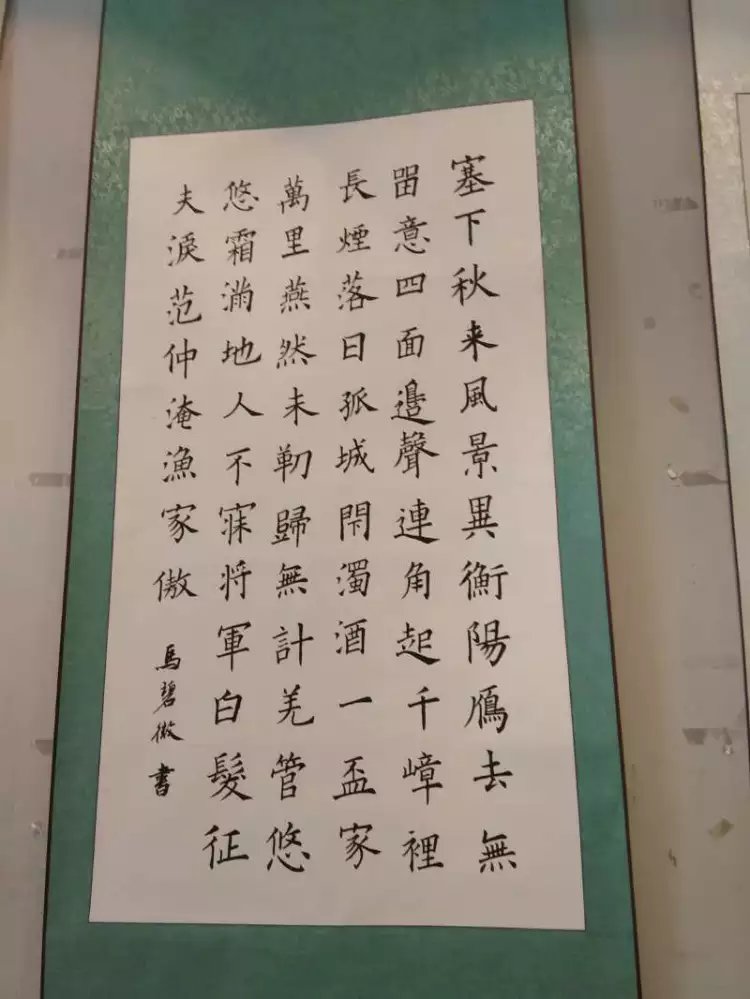 塞下秋来風景異衡陽鴈去無
畱意四面邉聲連角起千嶂裡
長煙落日孤城閇濁酒一盃家
萬里燕然未勒歸無計羌管悠
悠霜滿地人不寐将軍白髮征
夫淚范仲淹漁家傲
馬碧微書